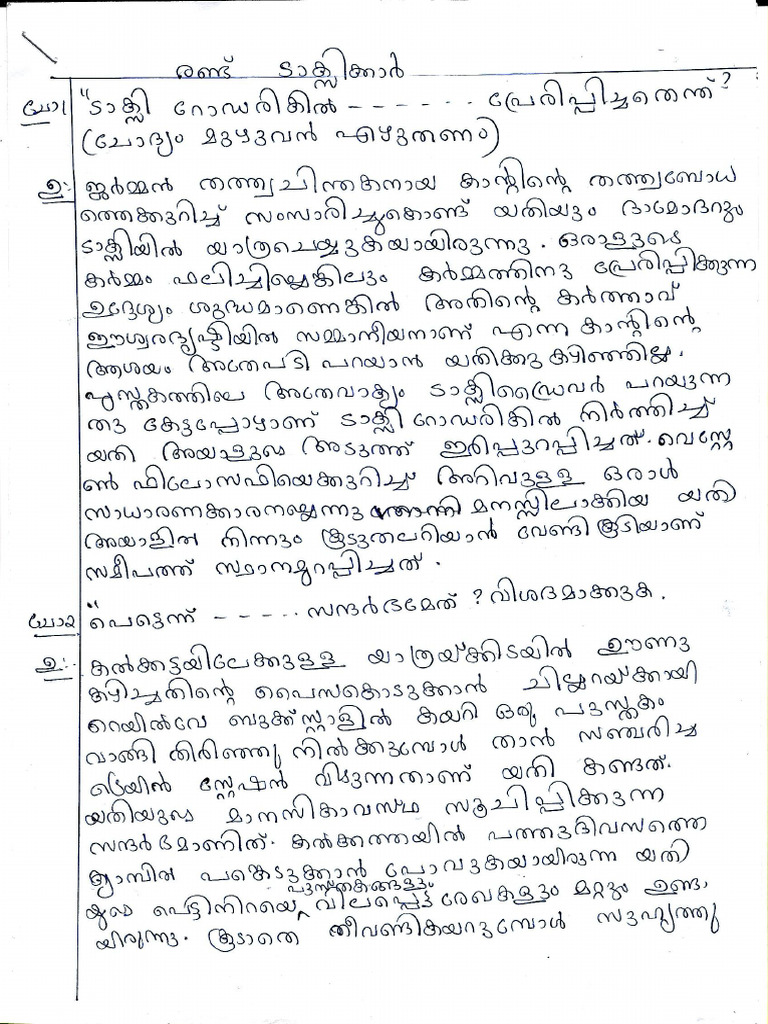 രണ്ട് ടാക്സിക്കാർ
ചോ1 "ടാക്സി റോഡരികിൽ - - - - - - പ്രേരിപ്പിച്ചതെന്ത്?
(ചോദ്യം മുഴുവൻ എഴുതണം)
ഉ:- ജർമ്മൻ തത്ത്വചിന്തകനായ കാന്റിന്റെ തത്ത്വബോധ
ത്തെക്കുറിച്ച് സംസാരിച്ചുകൊണ്ട് യതിയും ദാമോദറും
ടാക്സിയിൽ യാത്രചെയ്യുകയായിരുന്നു. ഒരാളുടെ
കർമ്മം ഫലിച്ചില്ലെങ്കിലും കർമ്മത്തിനു പ്രേരിപ്പിക്കുന്ന
ഉദ്ദേശ്യം ശുദ്ധമാണെങ്കിൽ അതിന്റെ കർത്താവ്
ഈശ്വരദൃഷ്ടിയിൽ സമ്മാനീയനാണ് എന്ന കാന്റിന്റെ
ആശയം അതേപടി പറയാൻ യതിക്കു കഴിഞ്ഞില്ല.
പുസ്തകത്തിലെ അതേവാക്യം ടാക്സിഡ്രൈവർ പറയുന്ന
തു കേട്ടപ്പോഴാണ് ടാക്സി റോഡരികിൽ നിർത്തിച്ച്
യതി അയാളുടെ അടുത്ത് ഇരിപ്പുറപ്പിച്ചത്. വെസ്റ്റേ
ൺ ഫിലോസഫിയെക്കുറിച്ച് അറിവുള്ള ഒരാൾ
സാധാരണക്കാരനല്ലെന്നു മനസ്സിലാക്കിയ യതി
അയാളിൽ നിന്നും കൂടുതലറിയാൻ വേണ്ടി കൂടിയാണ്
സമീപത്ത് സ്ഥാനമുറപ്പിച്ചത്.
ചോ2 "പെട്ടെന്ന് - - - - - - സന്ദർഭമേത്? വിശദമാക്കുക.
ഉ:- കൽക്കട്ടയിലേക്കുള്ള യാത്രയ്ക്കിടയിൽ ഊണു
കഴിച്ചതിന്റെ പൈസകൊടുക്കാൻ ചില്ലറയ്ക്കായി
റെയിൽവേ ബുക്ക്സ്റ്റാളിൽ കയറി ഒരു പുസ്തകം
വാങ്ങി തിരിഞ്ഞു നിൽക്കുമ്പോൾ താൻ സഞ്ചരിച്ച
ട്രെയിൻ സ്റ്റേഷൻ വിടുന്നതാണ് യതി കണ്ടത്.
യതിയുടെ മാനസികാവസ്ഥ സൂചിപ്പിക്കുന്ന
സന്ദർഭമാണിത്. കൽക്കത്തയിൽ പത്തുദിവസത്തെ
ക്യാമ്പിൽ പങ്കെടുക്കാൻ പോവുകയായിരുന്ന യതി
യുടെ പെട്ടിനിറയെ പുസ്തകങ്ങളും വിലപ്പെട്ട രേഖകളും മറ്റും ഉണ്ടാ
യിരുന്നു. കൂടാതെ തീവണ്ടികയറുമ്പോൾ സുഹൃത്തു